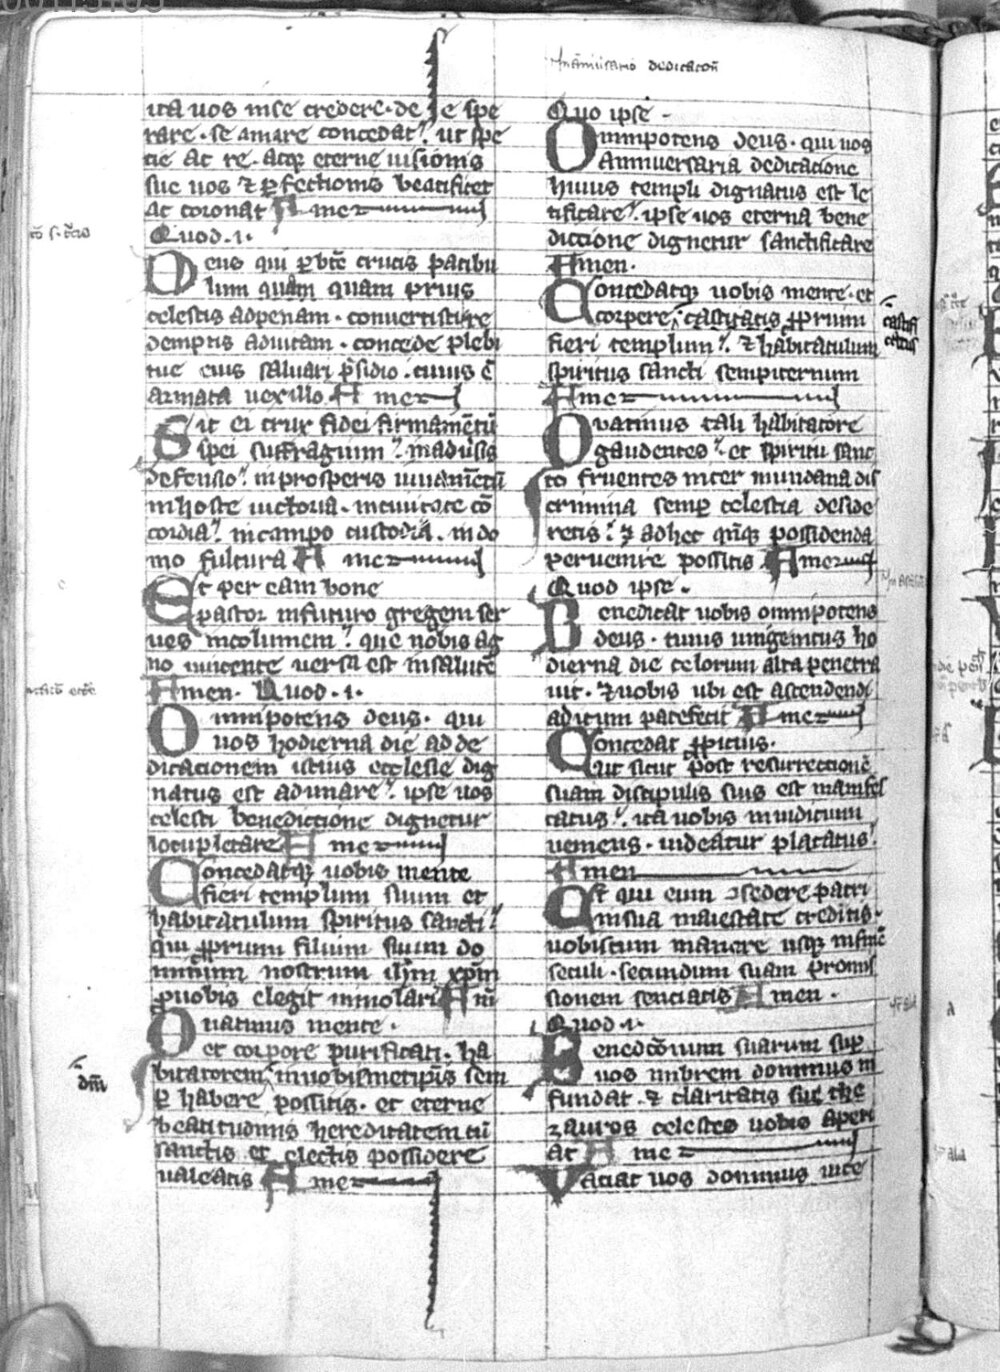 In anniuersario dedicacon̄
ita uos in se credere. de se spe
rare. se amare concedat. ut spe
cie ac re. atq; eterne uisionis
sue uos ⁊ ꝑfectionis beatificet
ac coronat Amen
Quod .i.
Deus qui ꝑ bt̄e crucis patibu
lum quam quam prius
celestis ad penam. conuertisti re
demptis ad uitam. concede plebi
tue eius saluari p̄sidio. cuius ē
armata uexillo. Amen
Sit ei crux fidei firmam̄tū
spei suffragium. in aduersis
defensio. in prosperis iuuam̄tū
in hoste uictoria. in ciuitate cō
cordia. in campo custodia. in do
mo fultura Amen
Et per eam bone
pastor in futuro gregem ser
ues incolumem. que nobis ag
no uincente uersa est in salutē
Amen. Quod .i.
Omnipotens deus. qui
uos hodierna die ad de
dicacionem istius ecclesie dig
natus est adunare. ipse uos
celesti benedictione dignetur
locupletare Amen
Concedatq; uobis mente
fieri templum suum et
habitaculum spiritus sancti
qui ꝓprium filium suum do
minum nostrum ih̄m xp̄m
pro uobis elegit immolari Am̄
Quatinus mente.
et corpore purificati. ha
dm̄
bitatorem in uobismetip̄is sem
ꝑ habere possitis. et eterne
beatitudinis hereditatem cū
sanctis et electis possidere
ualeatis Amen
Quo ipse.
Omnipotens deus. qui uos
Anniuersaria dedicacione
huius templi dignatus est le
tificare. ipse uos eterna bene
diccione dignetur sanctificare
Amen.
Concedatq; uobis mente. et
corpere castitatis ꝓprium
fieri templum. ⁊ habitaculum
spiritus sancti sempiternum
Amen
Quatinus tali habitatore
gaudentes. et spiritu sanc
to fruentes inter mundana dis
crimina semꝑ celestia deside
retis. ⁊ adhec quiq; possidenda
peruenire possitis Amen
Quod ipse.
Benedicat uobis omnipotens
deus. cuius unigenitus ho
dierna die celorum alta penetra
uit. ⁊ uobis ubi est ascendendi
aditum patefecit Amen
Concedat ꝓpicius.
Ut sicut post resurrectionē
suam discipulis suis est manifes
tatus. ita uobis in iudicium
ueniens. uideatur placatus
Amen
Est qui eum ↄsedere patri
in sua maiestate creditis.
uobiscum manere usq; in finē
seculi. secundum suam promis
sionem senciatis Amen.
Quod .i.
Benedc̄onum suarum sup
uos imbrem dominus in
fundat. ⁊ claritatis sue the
zauros celestes uobis aperi
at Amen
Faciat uos dominus uite